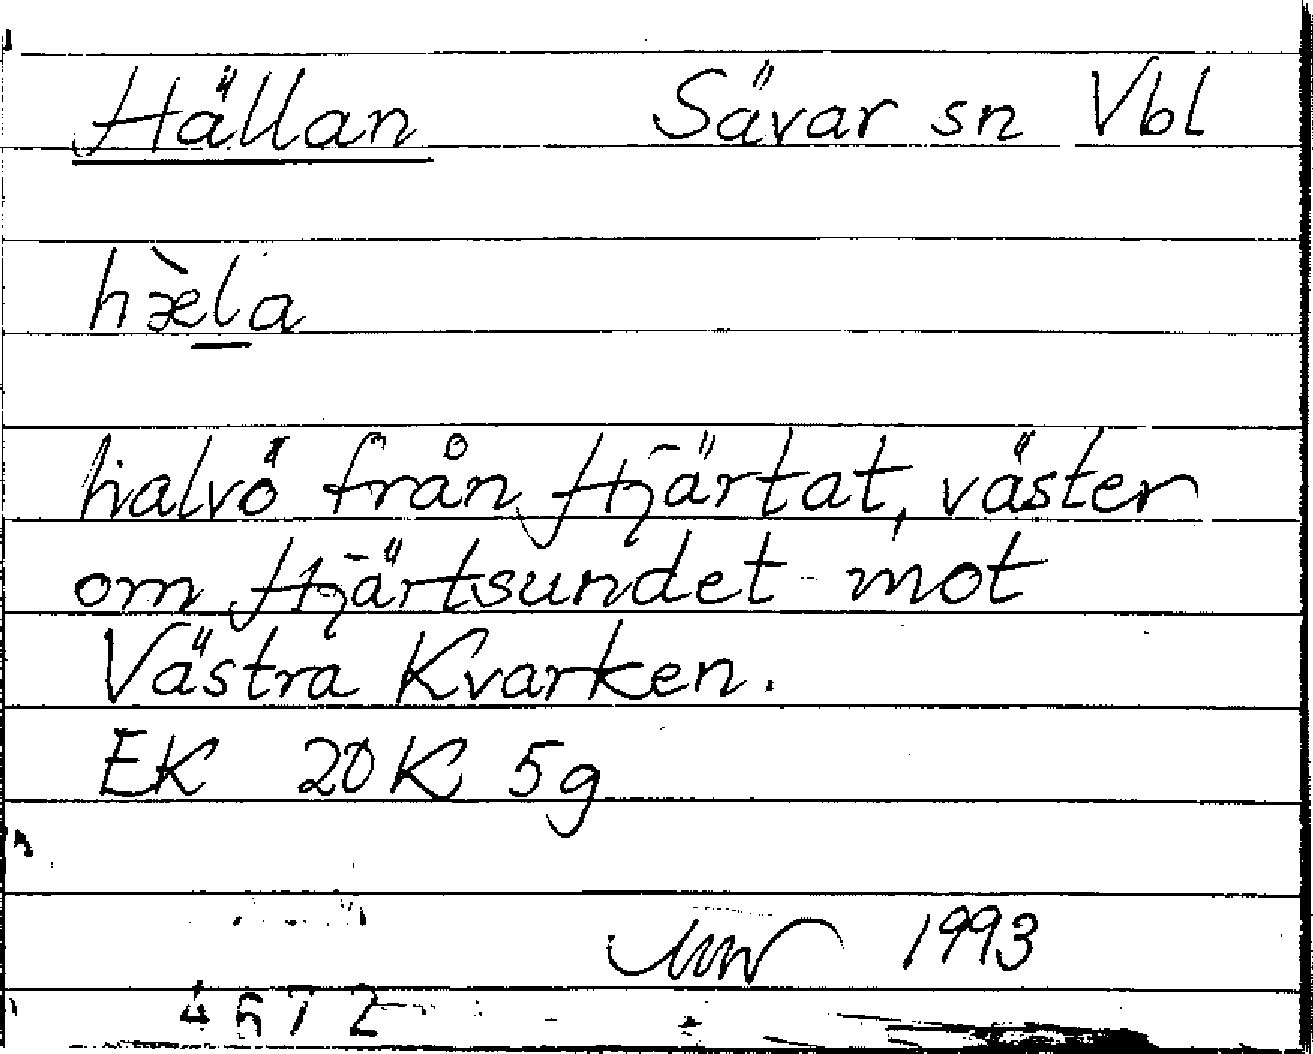 Hällan Sävar sn Vbl
hæ̀l̲a
halvö från Hjärtat, väster
om Hjärtsundet mot
Västra Kvarken.
EK 20K 5g
1993
4672